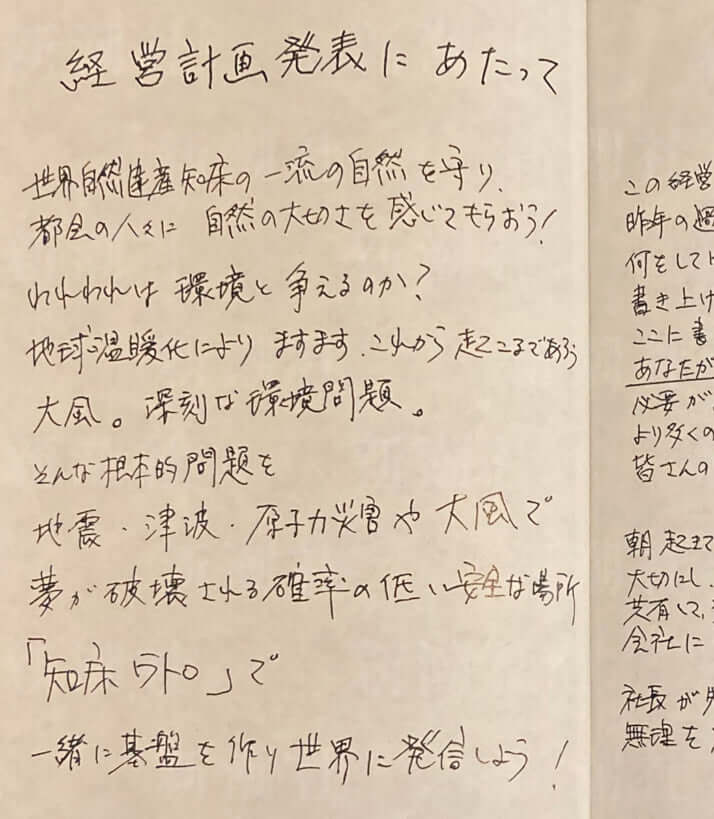 経営計画発表にあたって
世界自然遺産知床の一流の自然を守り、
都会の人々に 自然の大切さを感じてもらおう!
われわれは環境と争えるのか?
地球温暖化によりますます、これから起こるであろう
大風。深刻な環境問題。
そんな根本的問題を
地震・津波・原子力災害や大風で
夢が破壊される確率の低い安全な場所
「知床ウトロ」で
一緒に基盤を作り世界に発信しよう!
この経営
昨年の過
何をして
書き上げ
ここに書
あなたが
必要が
より多くの
皆さんの
朝起きて
大切にし、
共有して、
会社に
社長が
無理を